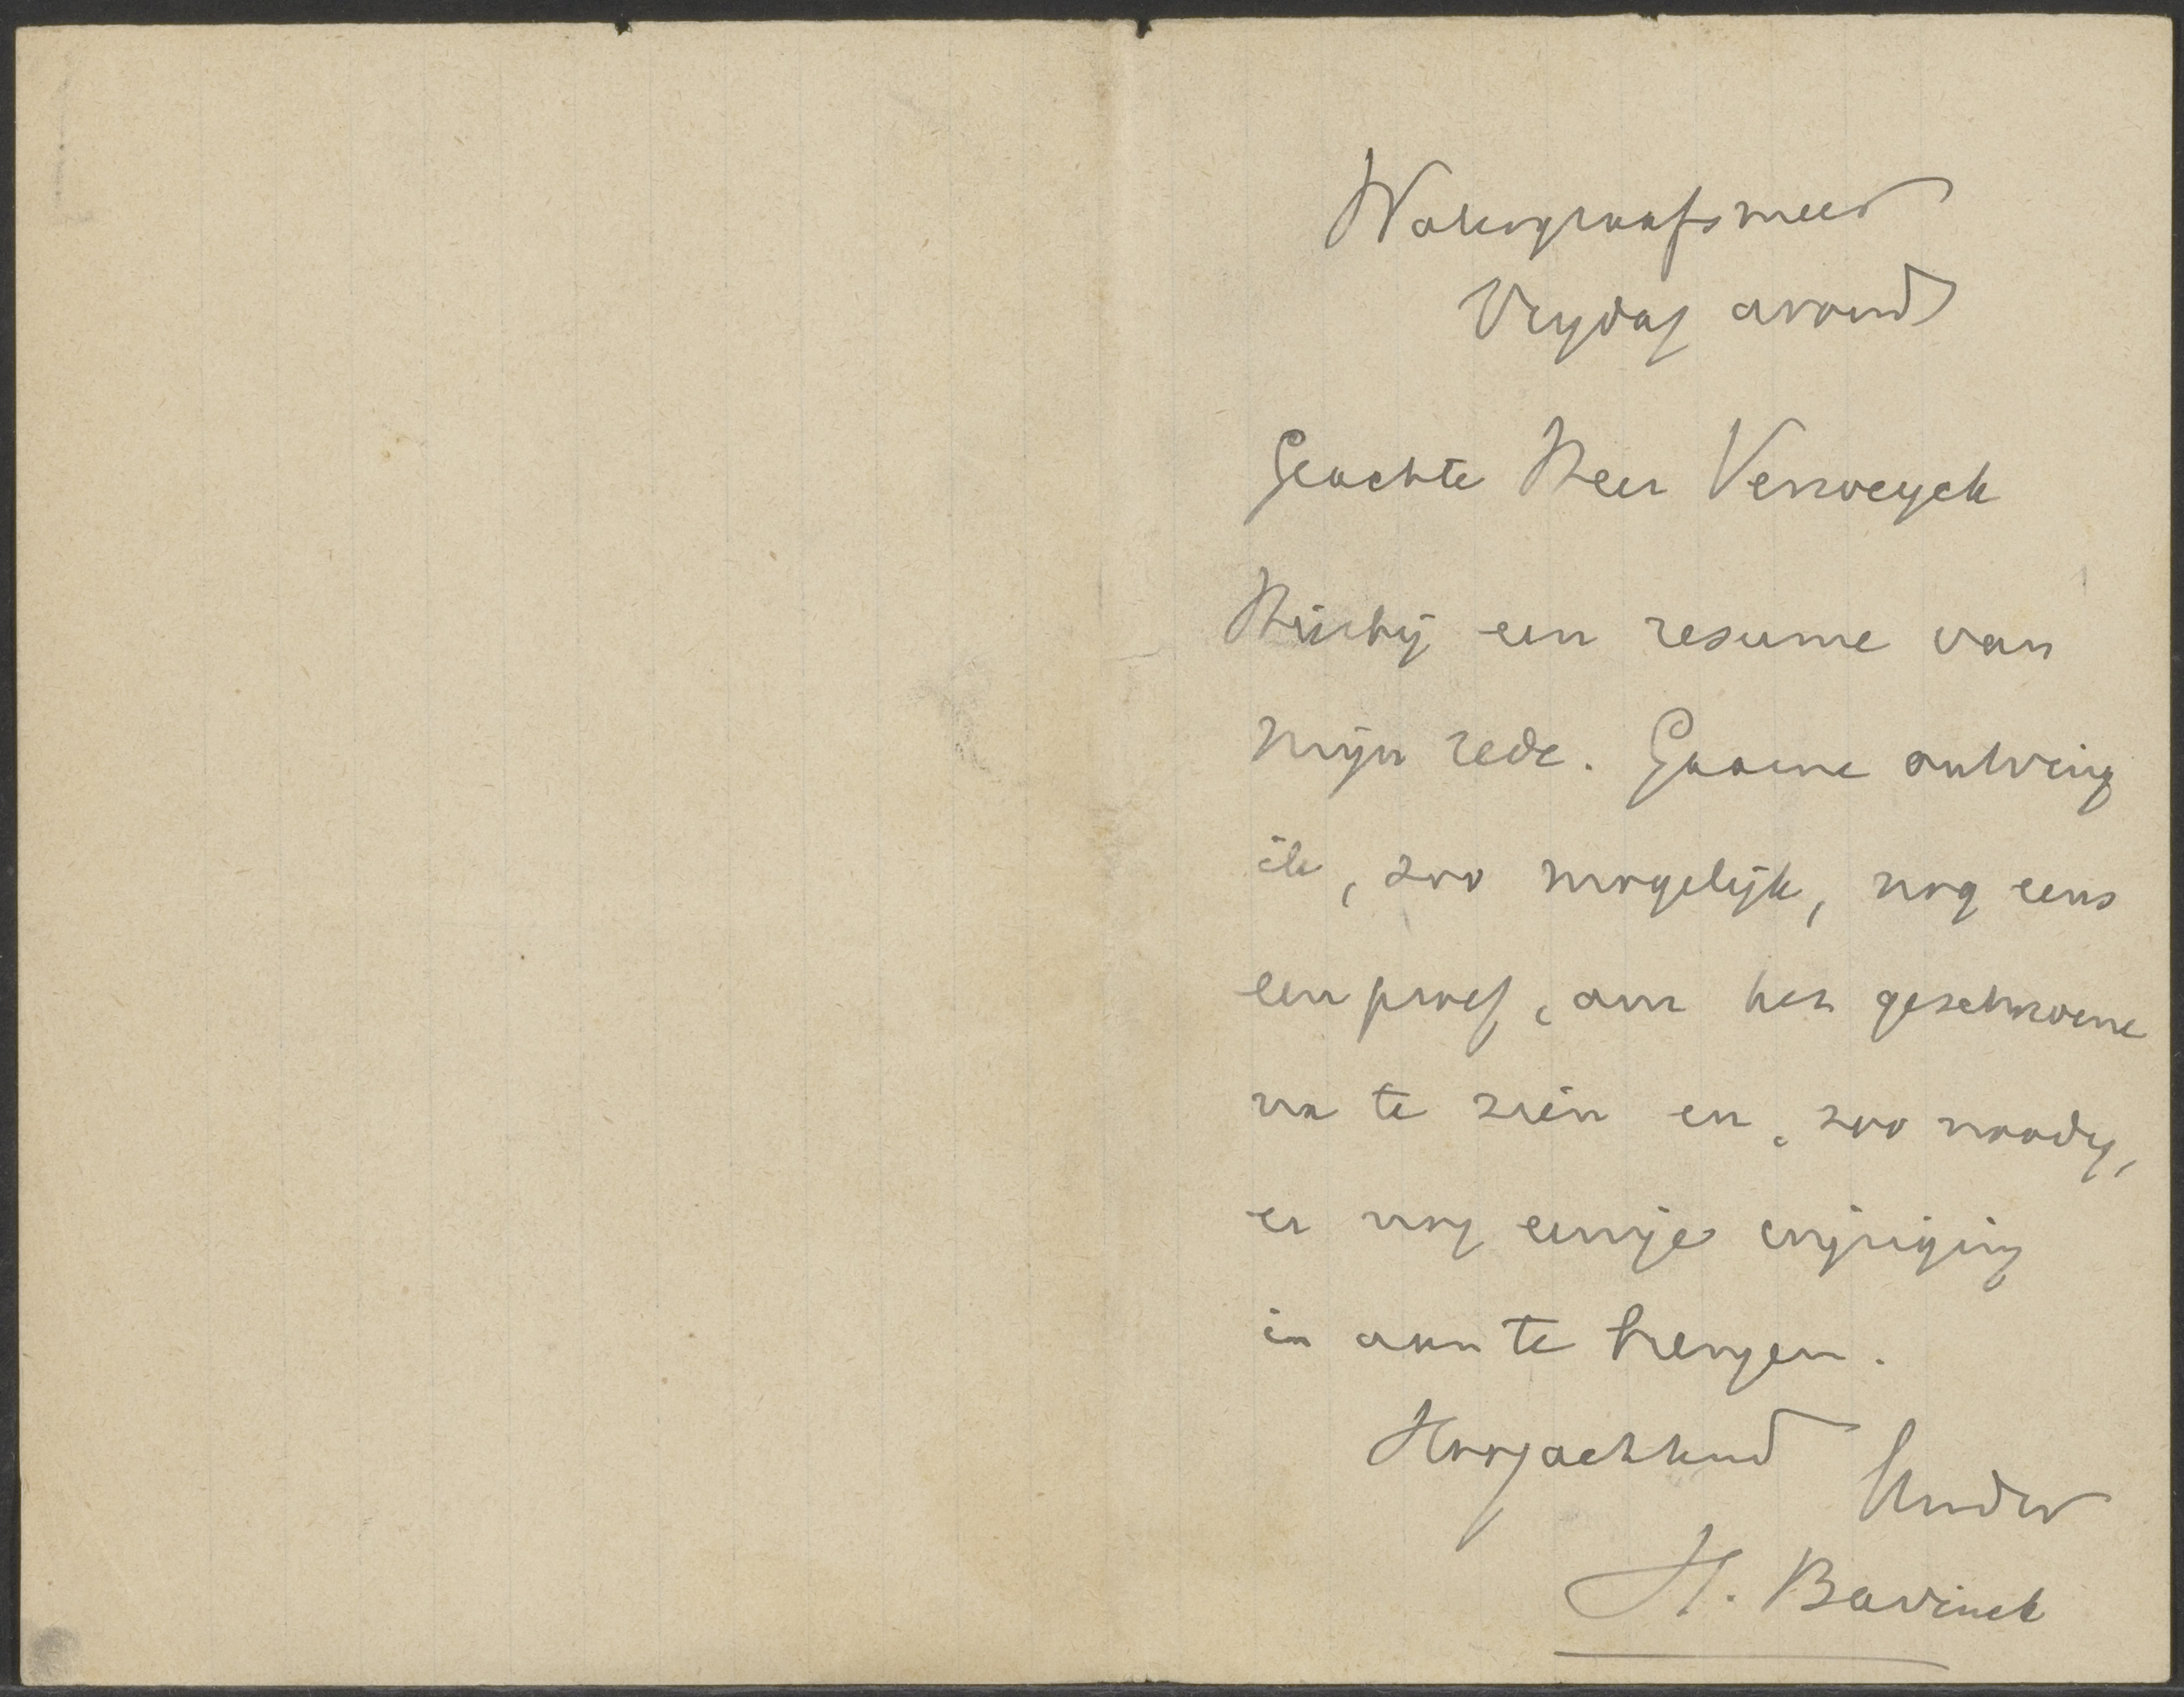 Watergraafsmeer
Vrijdag avond
Geachte Heer Verroeyck
Hierbij een resume van
mijn rede. Gaarne ontving
ik, zoo mogelijk, nog eens
een proef, om het geschrevene
na te zien en, zoo noodig,
er nog eenige wijziging
in aan te brengen.
Hoogachtend
H. Bavinck